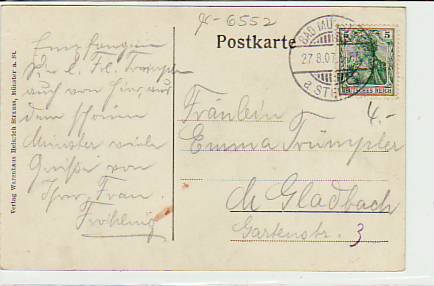 x-6552
Postkarte
BAD MÜNSTER
27.8.07
a STEIN
5 5
DEUTSCHES REICH
4.-
Verlag Warenhaus Heinrich Strauss, Münster a. St.
Empfangen
Sie l. Frl. Trümpler
auf von hier aus
dem schönen
Münster viele
Grüße von
Ihrer Frau
Fröhling
Fräulein
Emma Trümpler
M. Gladbach
Gartenstr. 3